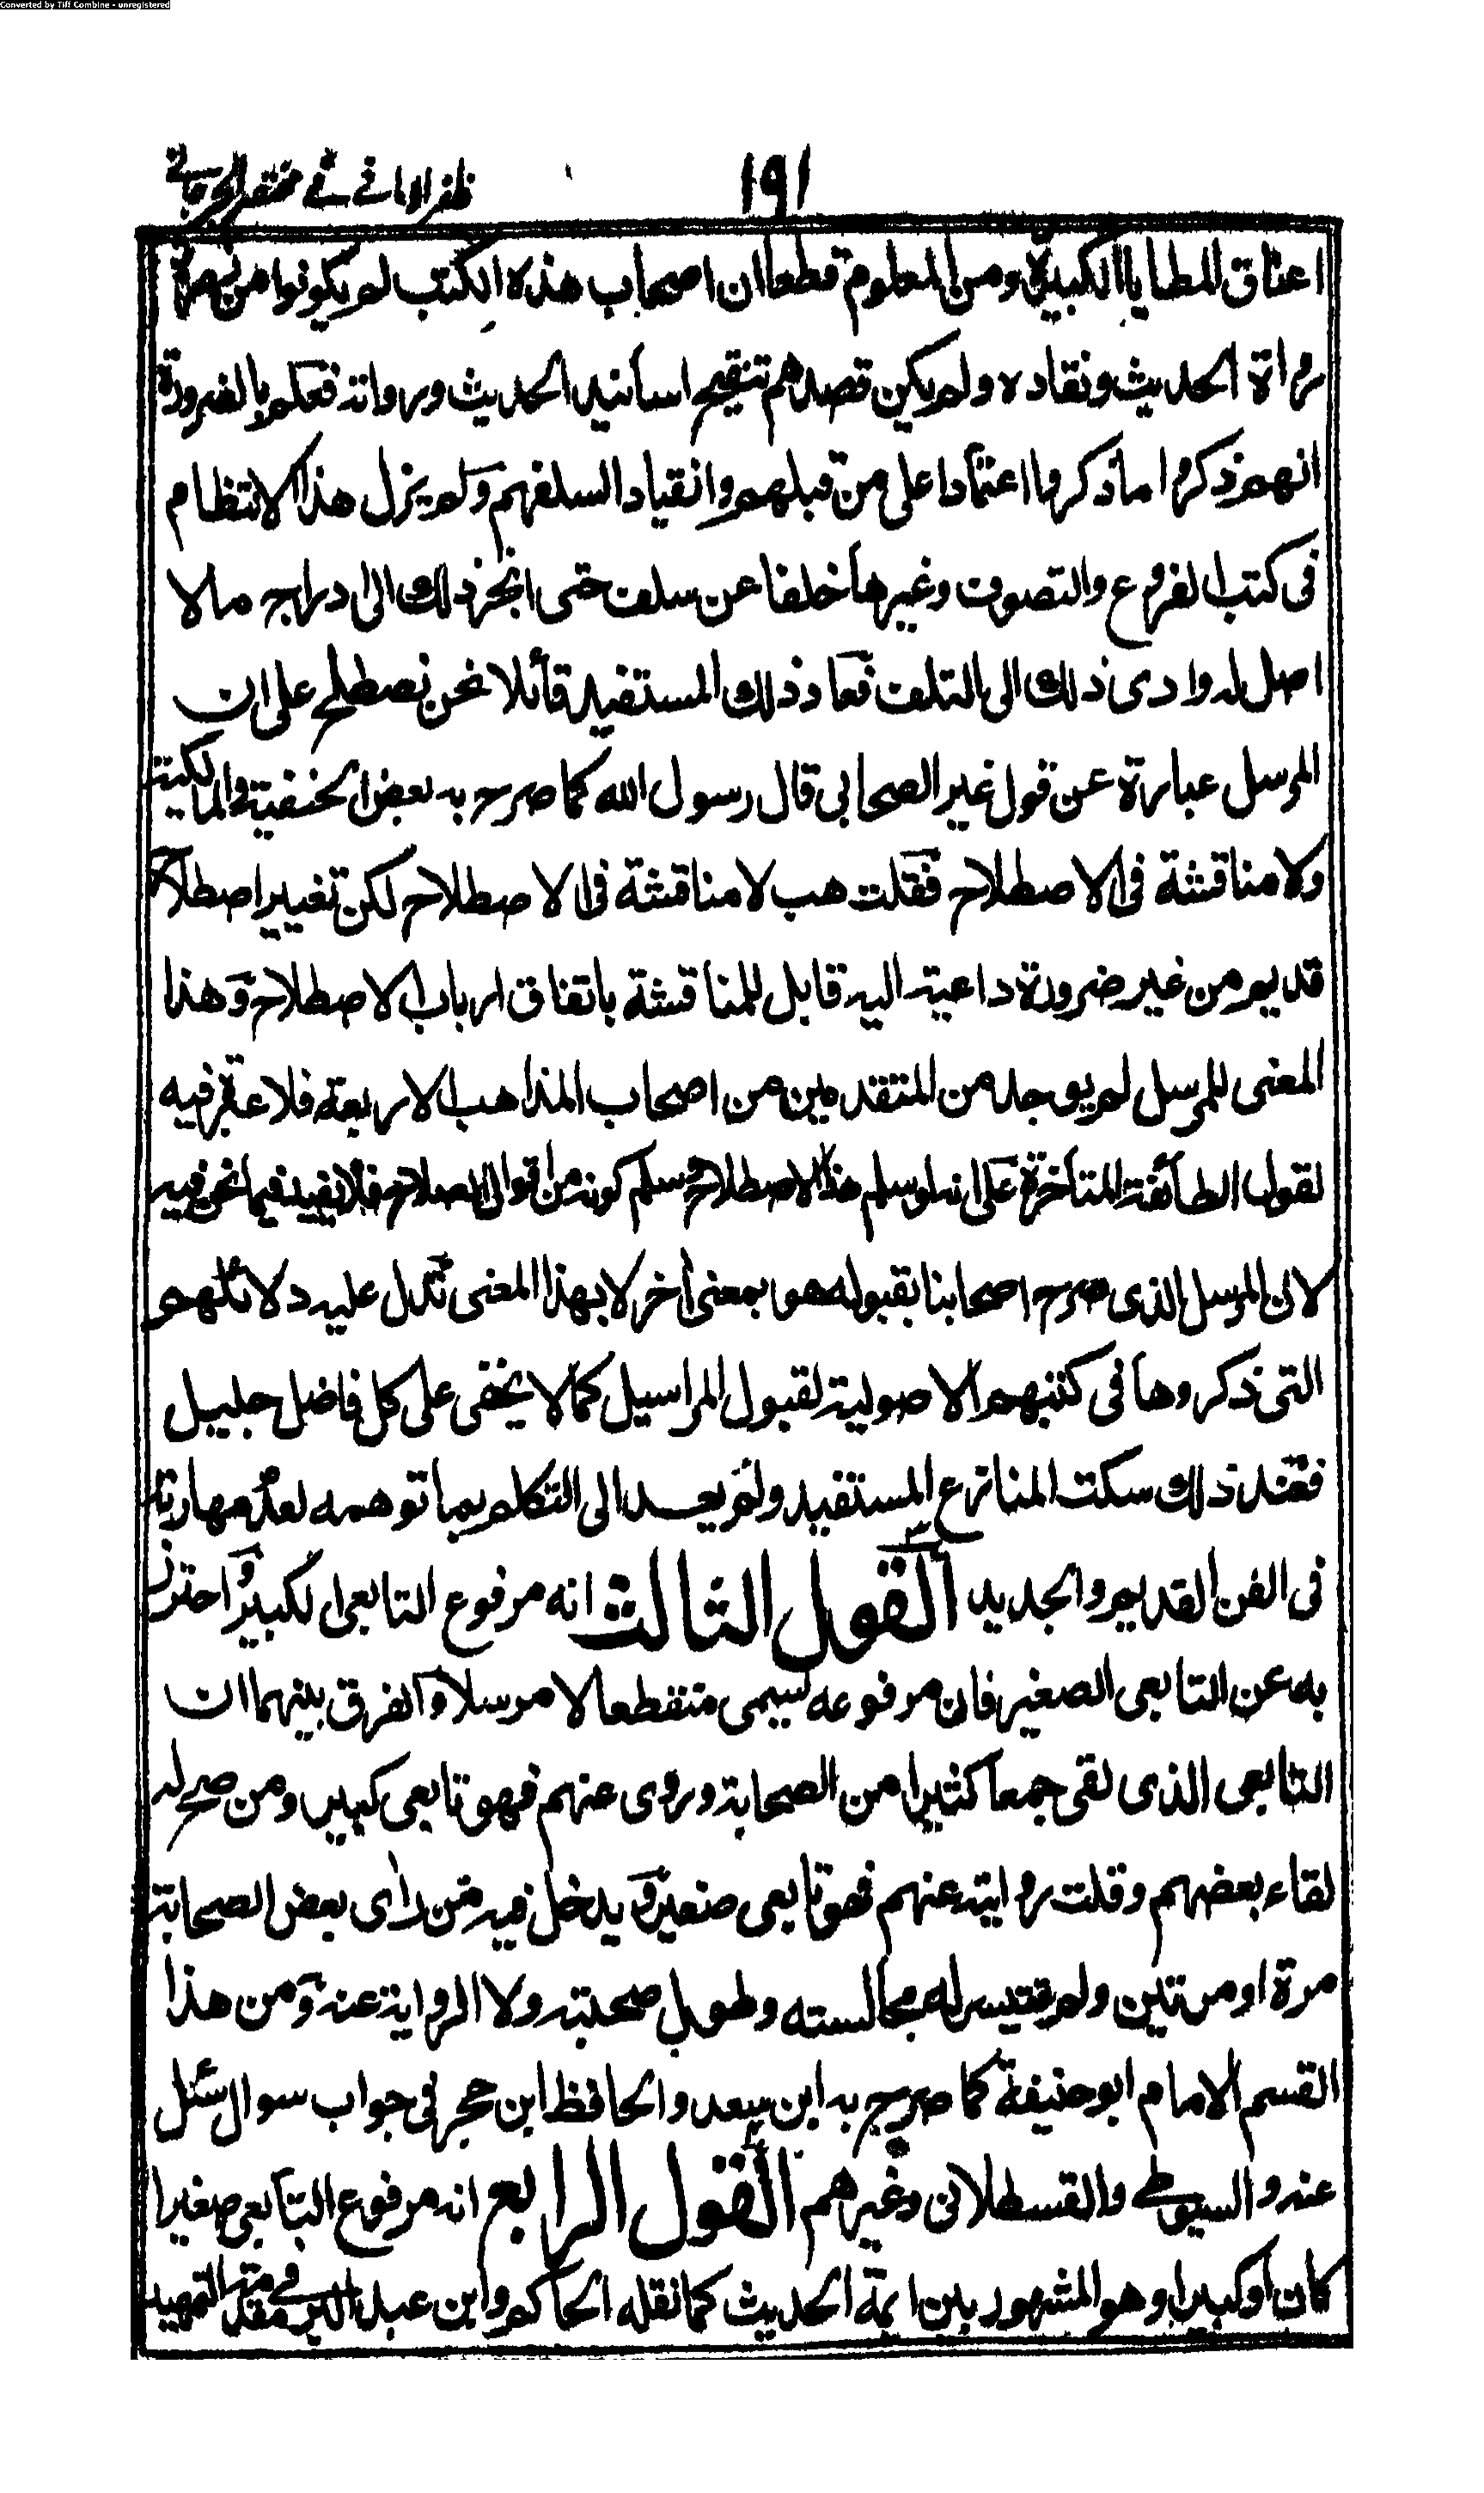 Converted by Tiff Combine - unregistered
١٩١ ظفر الامانے فے مختصر الجرجانے
اعناق المطايا الكبيرة ومن المعلوم قطعا ان اصحاب هذه الكتب لم يكونوا من مهرة
رواة الحديث ونقاده ولم يكن قصدهم تنقيح اسانيد الحديث ورواته فعلم بالضرورة
انهم ذكروا ما ذكروا اعتمادا على من قبلهم وانقيادا لسلفهم ولم يزل هذا الانتظام
فى كتب الفروع والتصوف وغيرها خلفا عن سلف حتى انجر ذلك الى ادراج ما لا
اصل له وادى ذلك الى التلف فعاد ذلك المستفيد قائلا نحن نصطلح على ان
المرسل عبارة عن قول غير الصحابى قال رسول الله كما صرح به بعض الحنفية والمالكية
ولا مناقشة فى الاصطلاح فقلت هب لا مناقشة فى الاصطلاح لكن تغيير اصطلاح
قديم من غير ضرورة داعية اليه قابل للمناقشة باتفاق ارباب الاصطلاح وهذا
المعنى للمرسل لم يوجد من المتقدمين من اصحاب المذاهب الاربعة فلا عبرة فيه
لقول الطائفة المتأخرة على انه لو سلم هذا الاصطلاح وسلم كونه من اقوال الاصطلاح فلا يفيد فيما نحن فيه
لان المرسل الذى صرح اصحابنا بقبوله هو بمعنى أخر لا بهذا المعنى تدل عليه دلائلهم
التى ذكروها فى كتبهم الاصولية لقبول المراسيل كما لا يخفى على كل فاضل جليل
فعند ذلك سكت المنازع المستفيد ولم يعد الى التكلم بما توهمه لعدم مهارته
فى الفن القديم والجديد القول الثالث انه مرفوع التابعى الكبير واحترز
به عن التابعى الصغير فان مرفوعه يسمى منقطعا لا مرسلا والفرق بينهما ان
التابعى الذى لقى جمعا كثيرا من الصحابة وروى عنهم فهو تابعى كبير ومن صح له
لقاء بعضهم وقلت روايته عنهم فهو تابعى صغير ويدخل فيه من راى بعض الصحابة
مرة او مرتين ولم يتيسر له مجالسته وطول صحبته ولا الرواية عنه ومن هذا
القسم الامام ابو حنيفة كما صرح به ابن سعد والحافظ ابن حجر فى جواب سوال سئل
عنه والسيوطے والقسطلانى وغيرهم القول الرابع انه مرفوع التابعى صغيرا
كان او كبيرا وهو المشهور بين ائمة الحديث كما نقله الحاكم وابن عبد البر فے مقدمة التمهيد